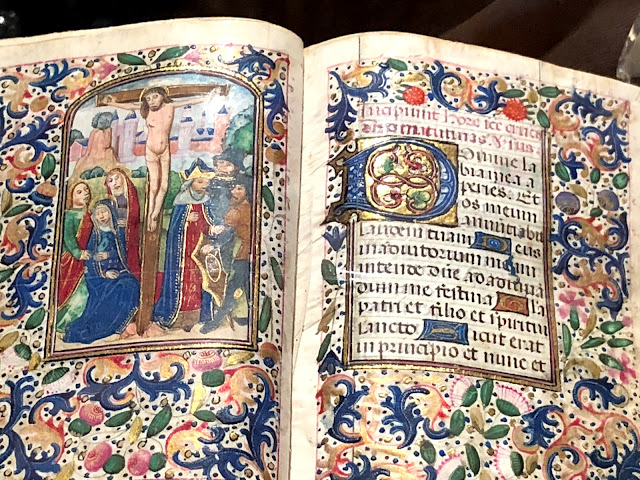 Incipiunt hore sce crucis
Domine la
bia mea a
peries. Et
os meum
annuntiabit
laudem tuam Deus
in adiutorium meum
intende dñe ad adiuva
dum me festina Gla
patri et filio et spiritui
sancto Sicut erat
in principio et nunc et